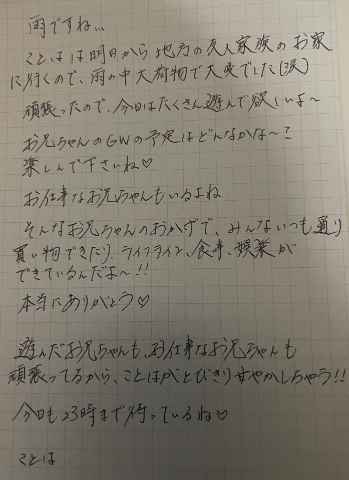 雨ですね…
ことはは明日から地方の友人家族のお家
に行くので、雨の中大荷物で大変でした(涙)
頑張ったので、今日はたくさん遊んで欲しいよ〜
お兄ちゃんのGWの予定はどんなかな〜?
楽しんで下さいね♡
お仕事なお兄ちゃんもいるよね
そんなお兄ちゃんのおかげで、みんないつも通り
買い物できたり、ライフライン、食事、娯楽が
できているんだよ〜!!
本当にありがとう♡
遊んだお兄ちゃんも、お仕事なお兄ちゃんも
頑張ってるから、ことはがとびきり甘やかしちゃう!!
今日も23時まで待っているね♡
ことは